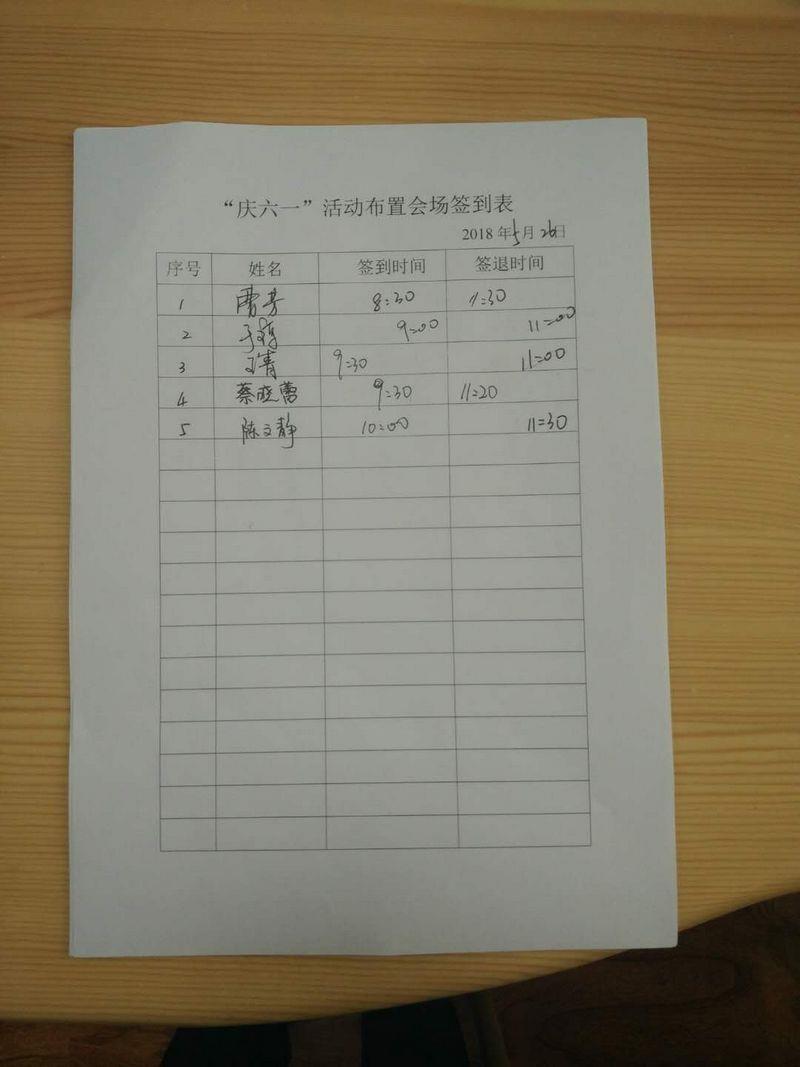 “庆六一”活动布置会场签到表
2018年5月26日
序号 姓名 签到时间 签退时间
1 曹芳 8:30 11:30
2 9:00 11:00
3 王青 9:30 11:00
4 蔡晓蕾 9:30 11:20
5 陈文静 10:00 11:30